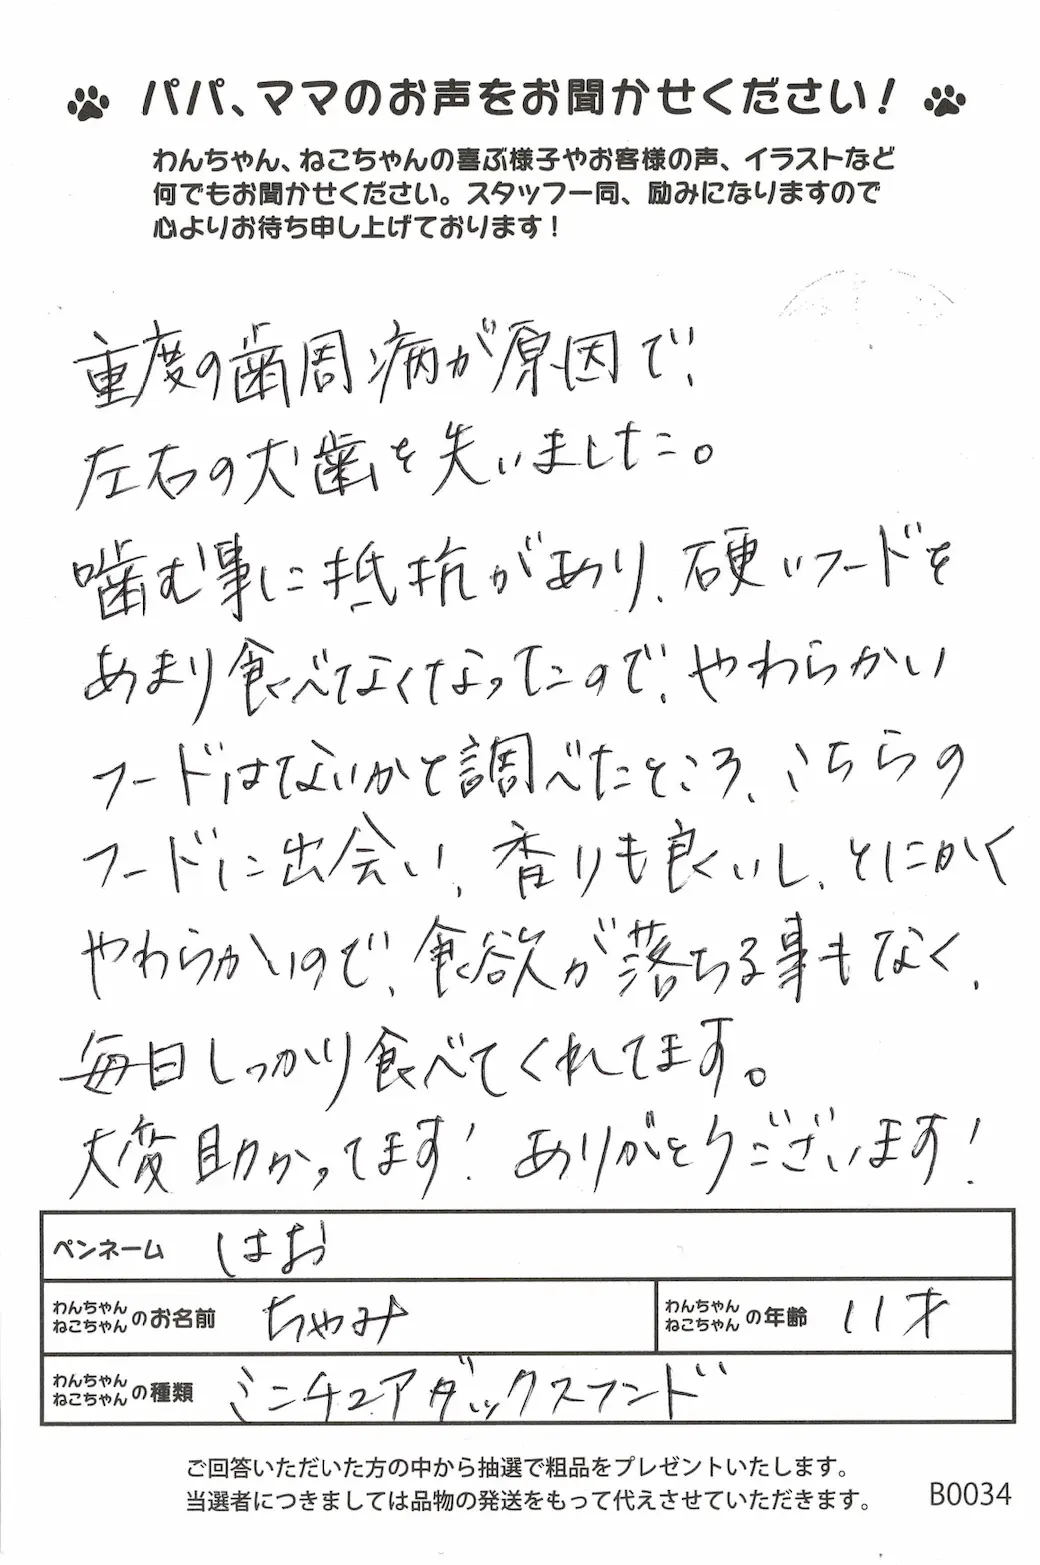 パパ、ママのお声をお聞かせください!
わんちゃん、ねこちゃんの喜ぶ様子やお客様の声、イラストなど
何でもお聞かせください。スタッフ一同、励みになりますので
心よりお待ち申し上げております!
重度の歯周病が原因で、
左右の犬歯を失いました。
噛む事に抵抗があり、硬いフードを
あまり食べなくなったので、やわらかい
フードはないかと調べたところ、こちらの
フードに出会い、香りも良いし、とにかく
やわらかいので、食欲が落ちる事もなく、
毎日しっかり食べてくれてます。
大変助かってます! ありがとうございます!
ペンネーム はお
わんちゃん ねこちゃん のお名前 ちゃみ わんちゃん ねこちゃん の年齢 11才
わんちゃん ねこちゃん の種類 ミニチュアダックスフンド
ご回答いただいた方の中から抽選で粗品をプレゼントいたします。
当選者につきましては品物の発送をもって代えさせていただきます。 B0034